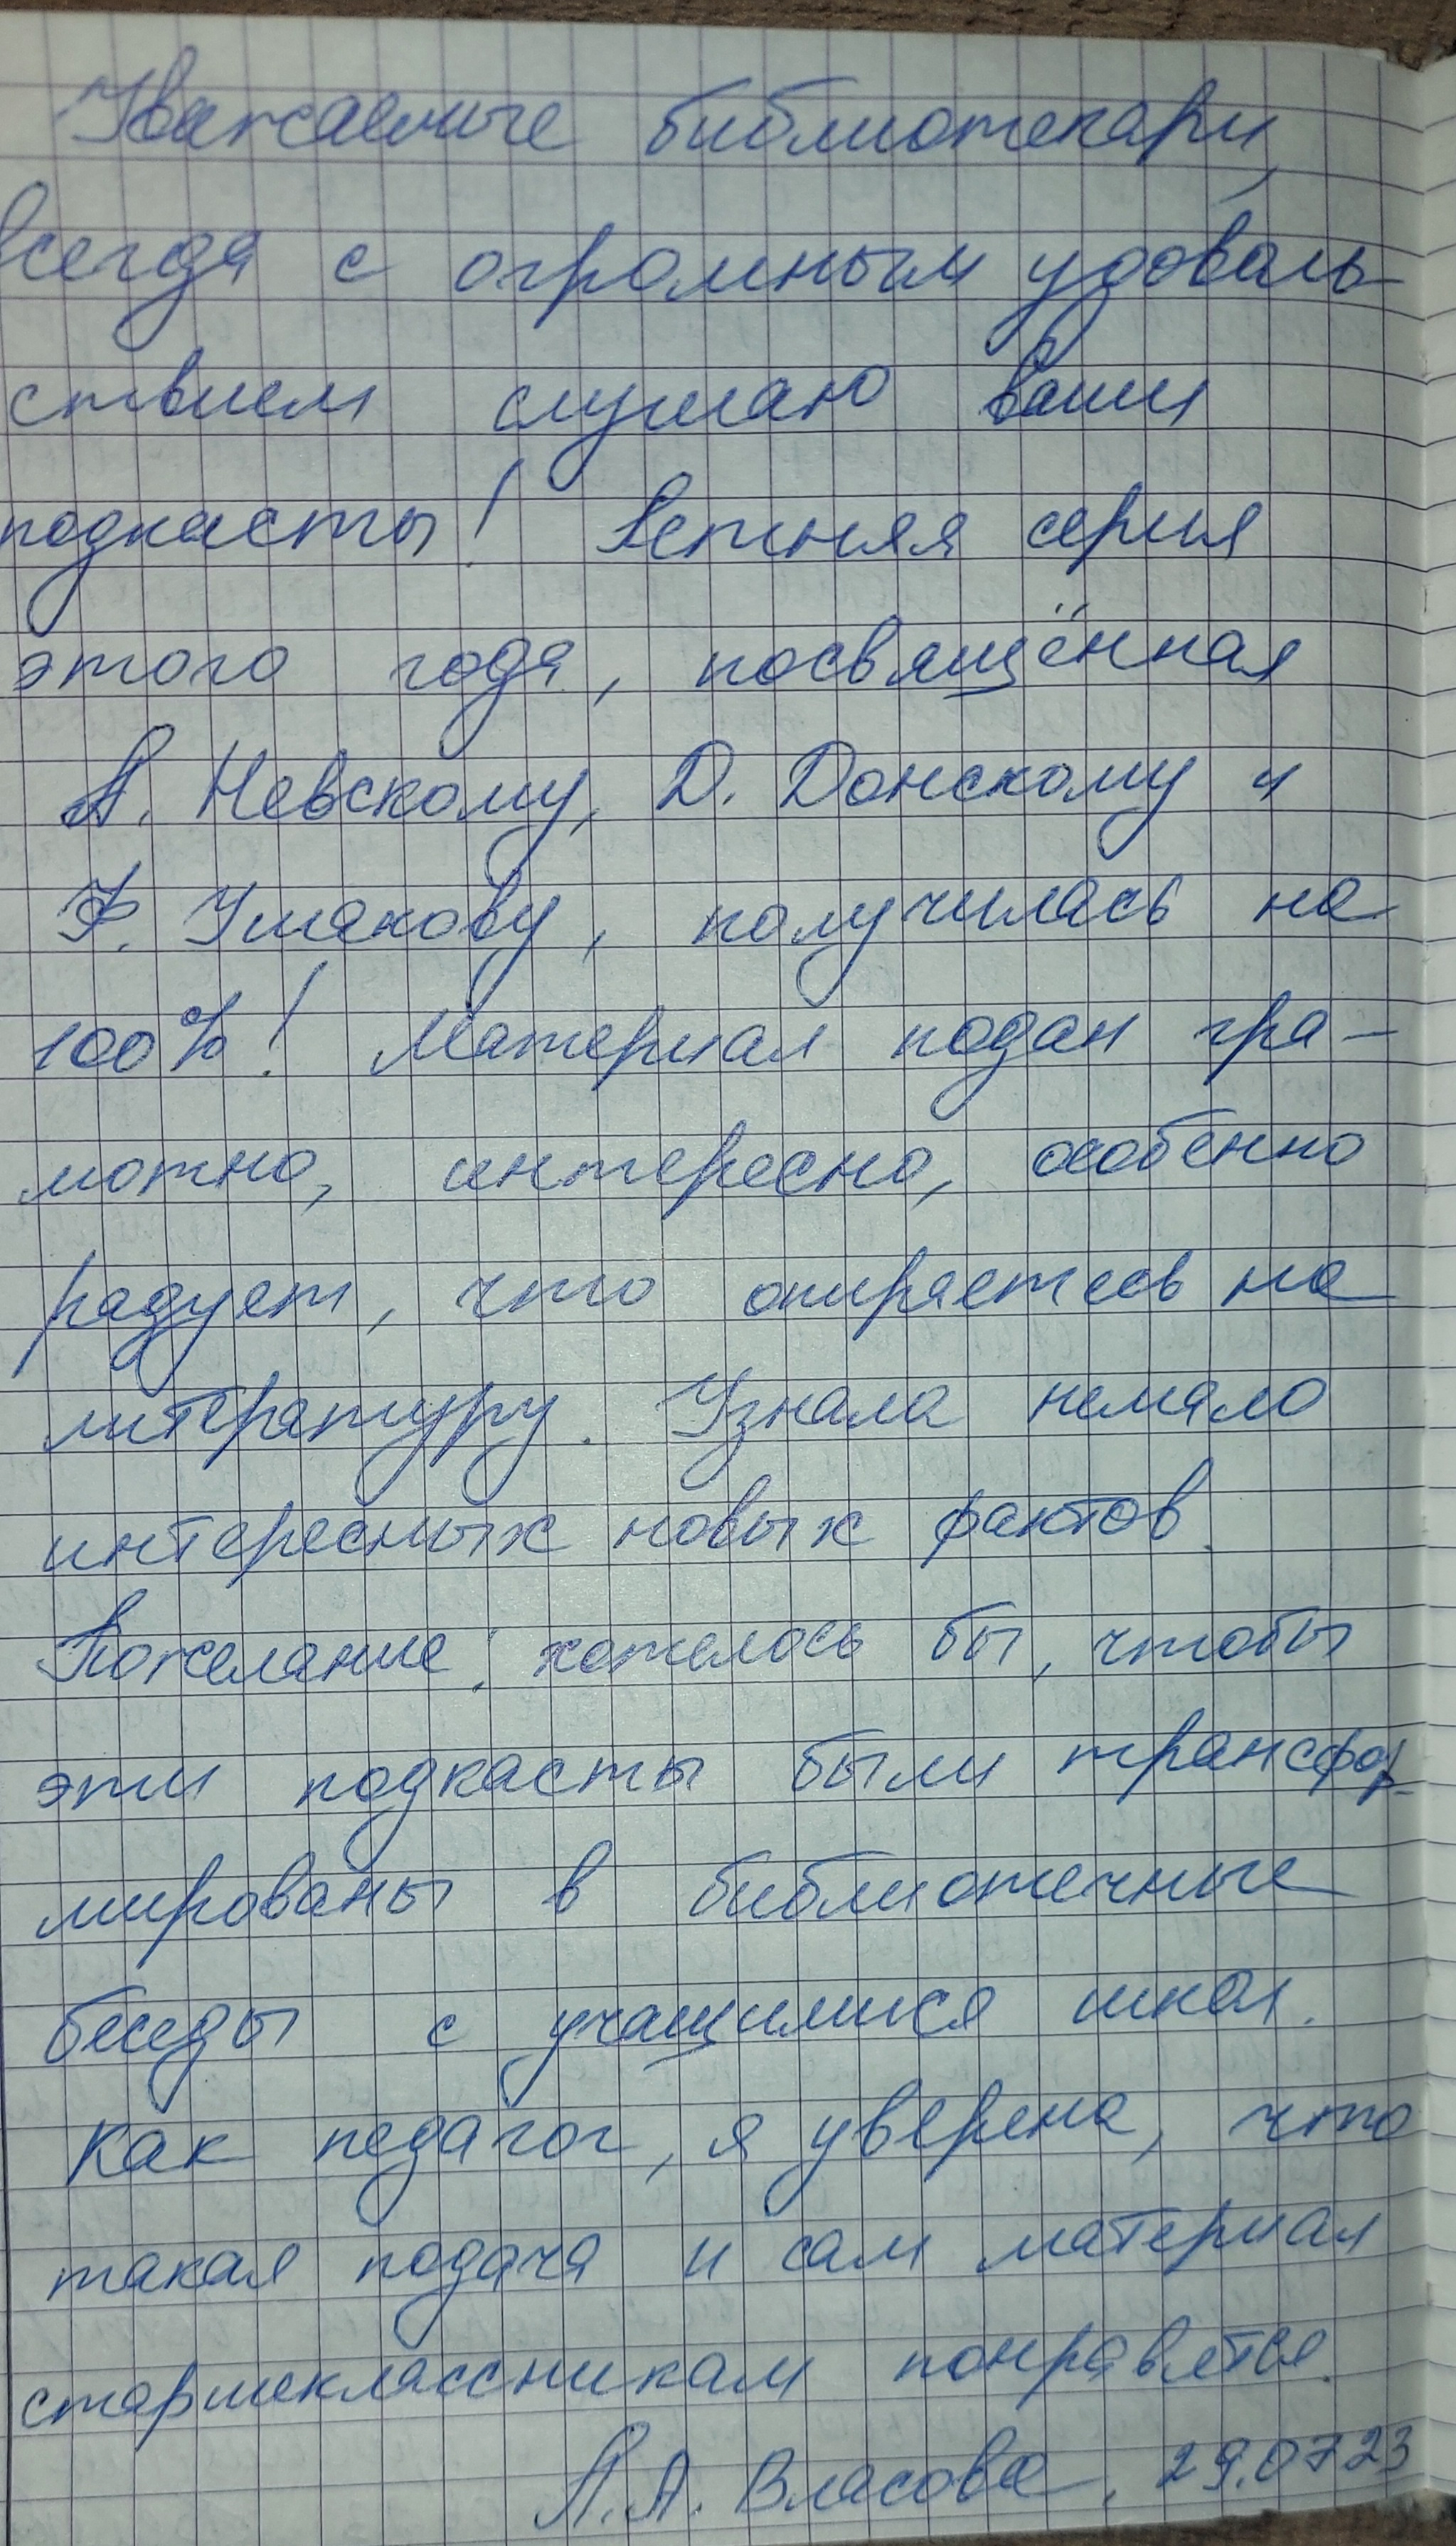 Уважаемые библиотекари,
всегда с огромным удоволь-
ствием слушаю ваши
подкасты! Летняя серия
этого года, посвящённая
А. Невскому, Д. Донскому и
Ф. Ушакову, получилась на
100%! Материал подан гра-
мотно, интересно, особенно
радует, что опираетесь на
литературу. Узнала немало
интересных новых фактов.
Пожелание: хотелось бы, чтобы
эти подкасты были трансфор-
мированы в библиотечные
беседы с учащимися школ.
Как педагог, я уверена, что
такая подача и сам материал
старшеклассникам понравятся.
А.А. Власова, 29.07.23